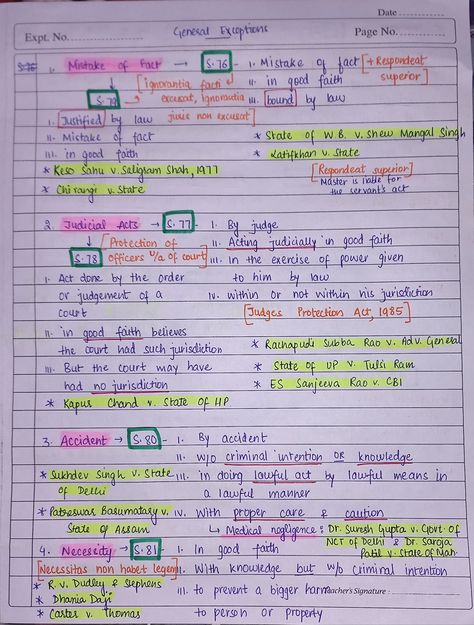 Date
Expt. No.
General Exceptions
Page No.
1. Mistake of Fact → S.76 - i. Mistake of fact [+ Respondeat superior]
[ignorantia facti excusat, ignorantia juris non excusat]
ii. in good faith
iii. bound by law
S.79
i. Justified by law
ii. Mistake of fact
iii. in good faith
* State of W.B. v. Shew Mangal Singh
* Latifkhan v. State
* Keso Sahu v. Saligram Shah, 1977
* Chirangi v. State
[Respondeat superior]
Master is liable for the servant's act
2. Judicial Acts → S.77 - i. By judge
ii. Acting judicially in good faith
iii. in the exercise of power given to him by law
iv. within or not within his jurisdiction
[Judges Protection Act, 1985]
S.78 [Protection of officers u/a of court]
i. Act done by the order
or judgement of a
court
ii. in good faith believes
the court had such jurisdiction
iii. But the court may have
had no jurisdiction
* Kapur Chand v. State of HP
* Rachapudi Subba Rao v. Adv. General
* State of UP v. Tulsi Ram
* ES Sanjeeva Rao v. CBI
3. Accident → S.80 - i. By accident
ii. w/o criminal intention OR knowledge
iii. in doing lawful act by lawful means in
a lawful manner
iv. With proper care & caution
↳ Medical negligence : Dr. Suresh Gupta v. Govt. of
NCT of Delhi & Dr. Saroja
Patil v. State of Mah.
* Sukhdev Singh v. State
of Delhi
* Patreswar Basumatary v.
State of Assam
4. Necessity → S.81 - i. In good faith
[Necessitas non habet legem]
ii. With knowledge but w/o criminal intention
iii. to prevent a bigger harm
to person or property
* R. v. Dudley & Stephens
* Dhania Daji
* Carter v. Thomas
Teacher's Signature :